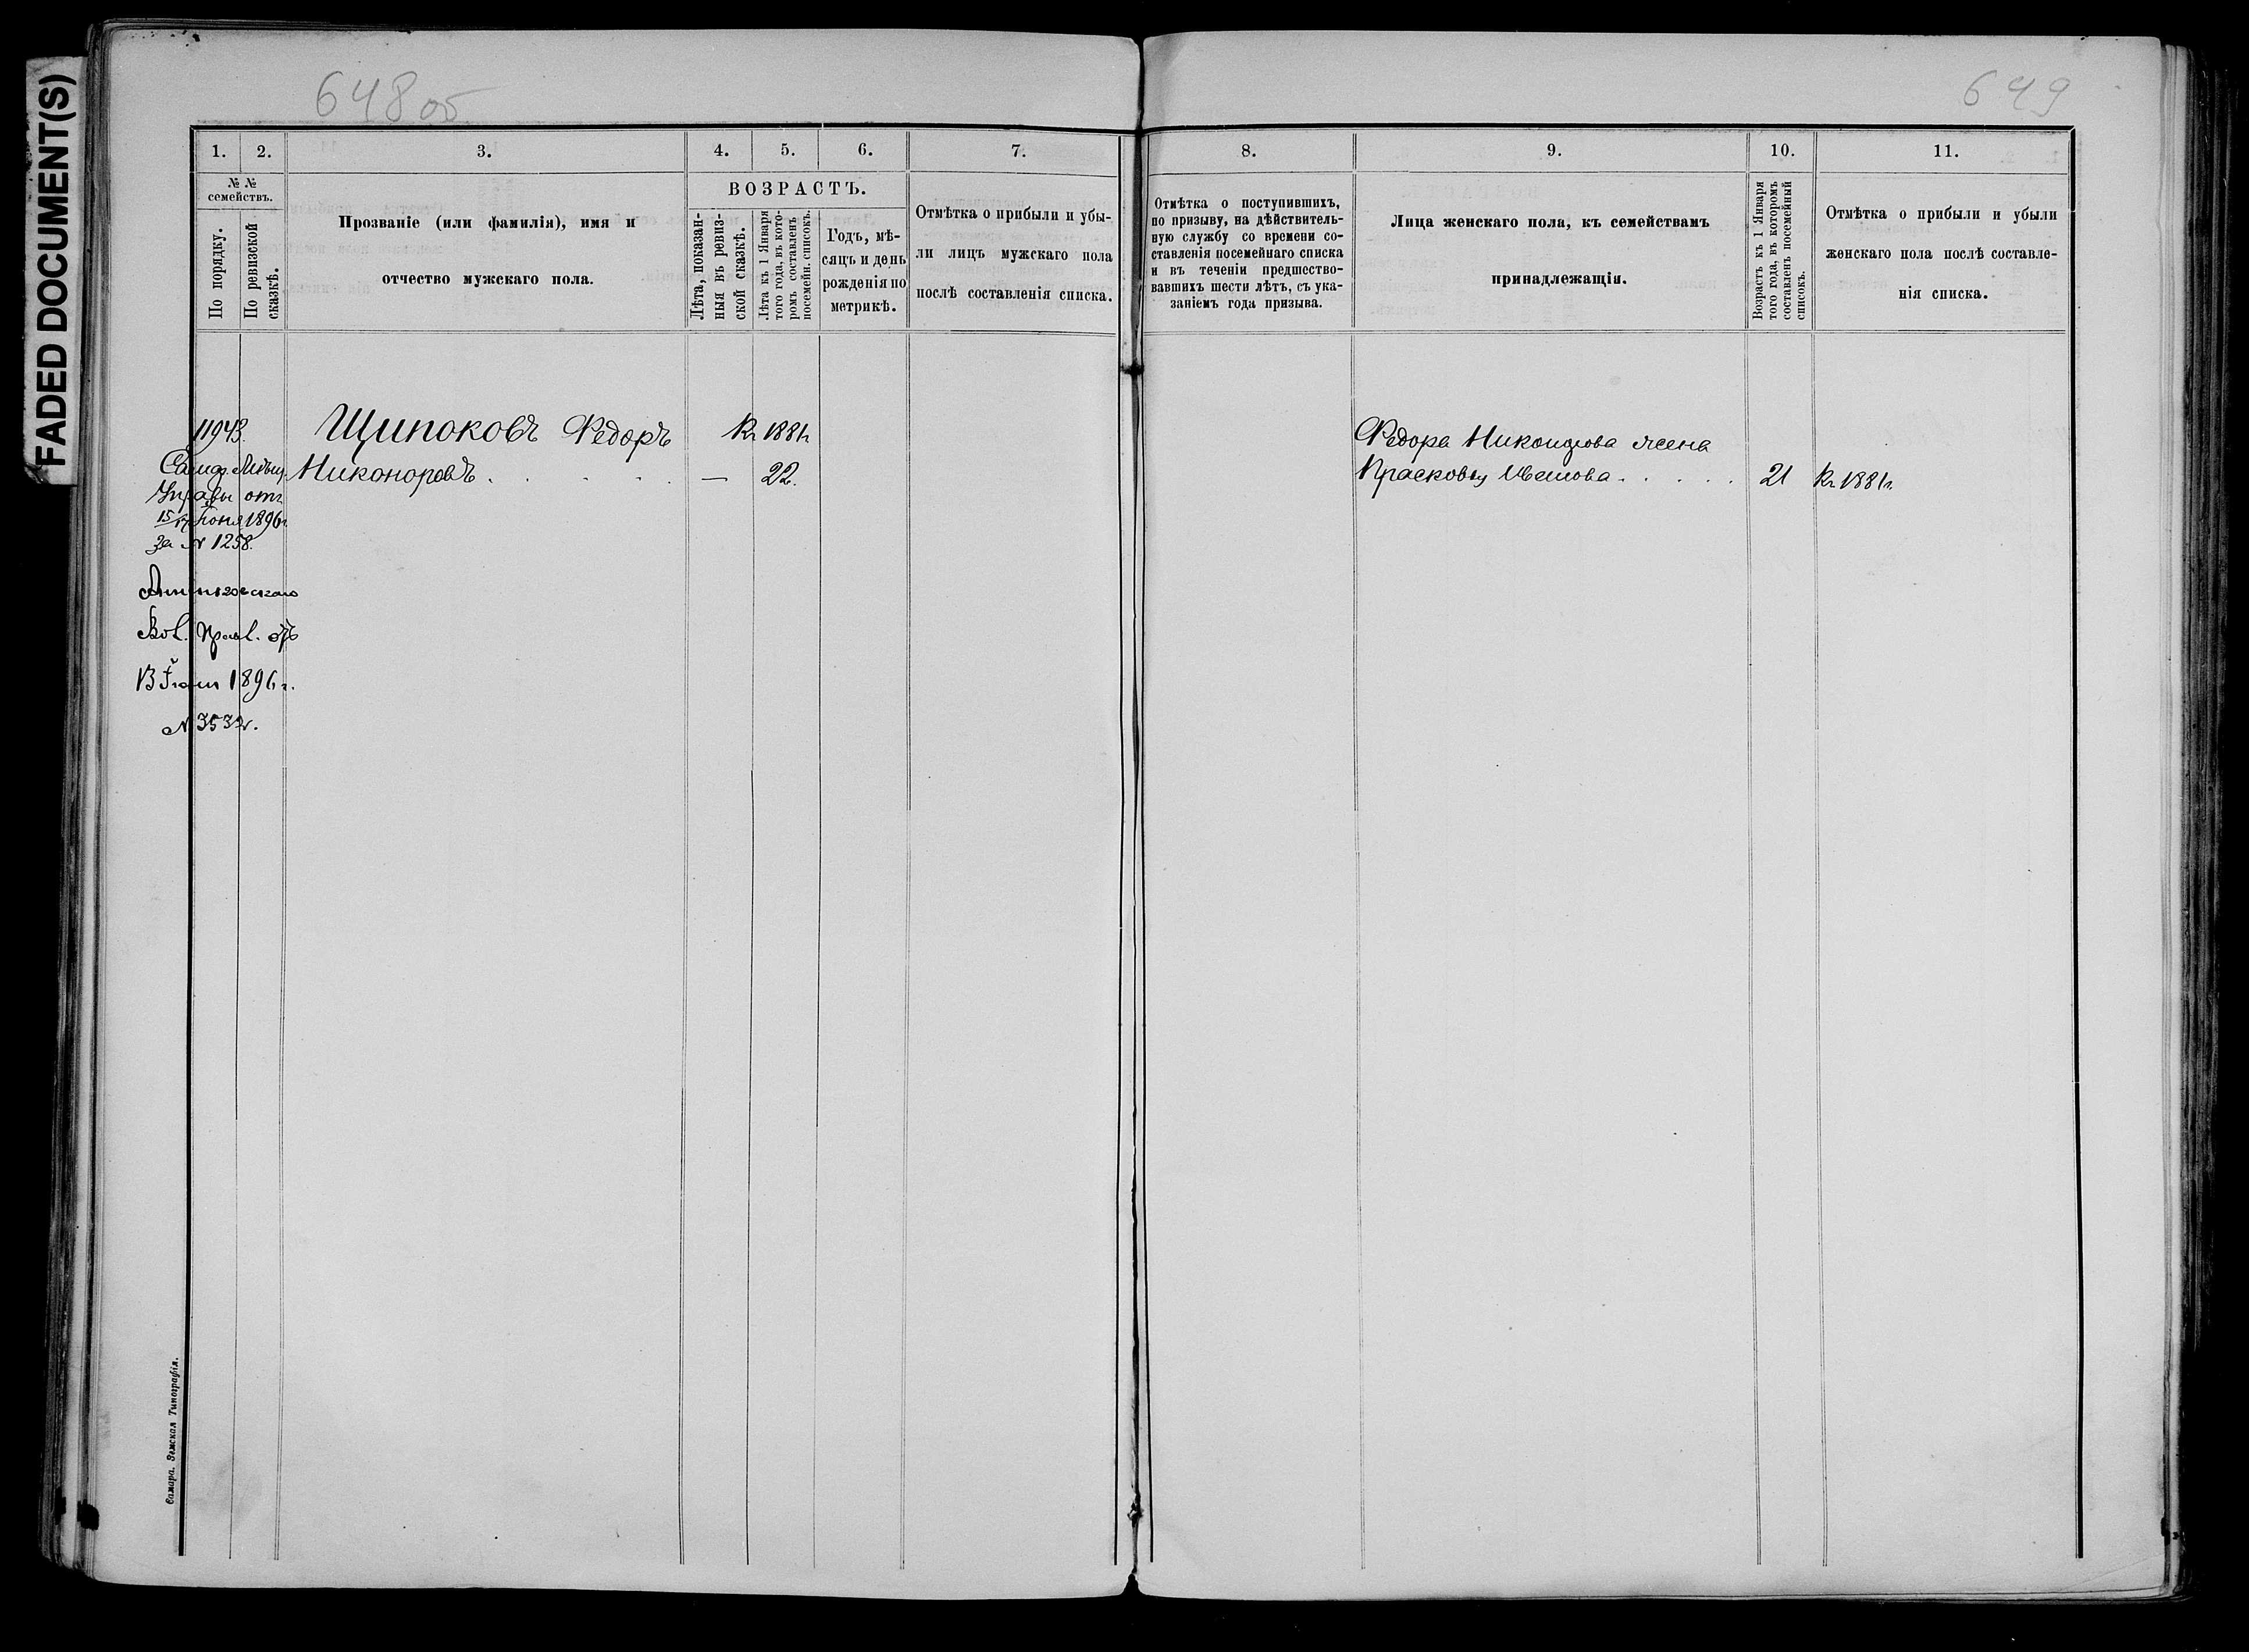 FADED DOCUMENT(S)
648 об
649
1.
2.
3.
4.
5.
6.
7.
8.
9.
10.
11.
№ №
семействъ.
По порядку.
По ревизской
сказкѣ.
Прозваніе (или фамилія), имя и
отчество мужскаго пола.
ВОЗРАСТЪ.
Лѣта, показан-
ныя въ ревиз-
ской сказкѣ.
Лѣта къ 1 Января
того года, въ кото-
ромъ составленъ
посемейн. списокъ.
Годъ, мѣ-
сяцъ и день
рожденія по
метрикѣ.
Отмѣтка о прибыли и убы-
ли лицъ мужскаго пола
послѣ составленія списка.
Отмѣтка о поступившихъ,
по призыву, на дѣйствитель-
ную службу со времени со-
ставленія посемейнаго списка
и въ теченіи предшество-
вавшихъ шести лѣтъ, съ ука-
заніемъ года призыва.
Лица женскаго пола, къ семействамъ
принадлежащія.
Возрастъ къ 1 Января
того года, въ которомъ
составленъ посемейный
списокъ.
Отмѣтка о прибыли и убыли
женскаго пола послѣ составле-
нія списка.
11943.
Щипоковъ Федоръ
Къ 1881г
Никоноровъ . . . . . — 22.
Управы отъ
15/17 Іюня 1896г.
За № 1258.
Вол. Правл. отъ
13 1896 г.
№ 3532.
Федора Никонорова жена
Прасковья . . . . . 21 Къ 1881г.
Самара. Земская Типографія.